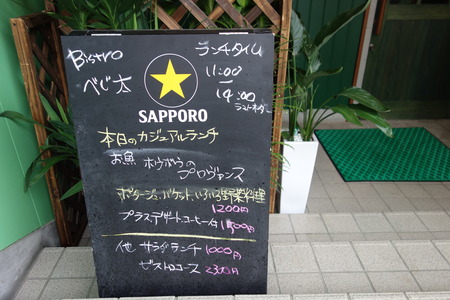 Bistro
べじ太
ランチタイム
11:00
〜
14:00
ラストオーダー
SAPPORO
本日のカジュアルランチ
お魚 ホウボウの
プロヴァンス
ポタージュ、バケット、いろいろ野菜料理
1200円
プラスデザートコーヒー付 1500円
他 サラダランチ 1000円
ビストロコース 2300円